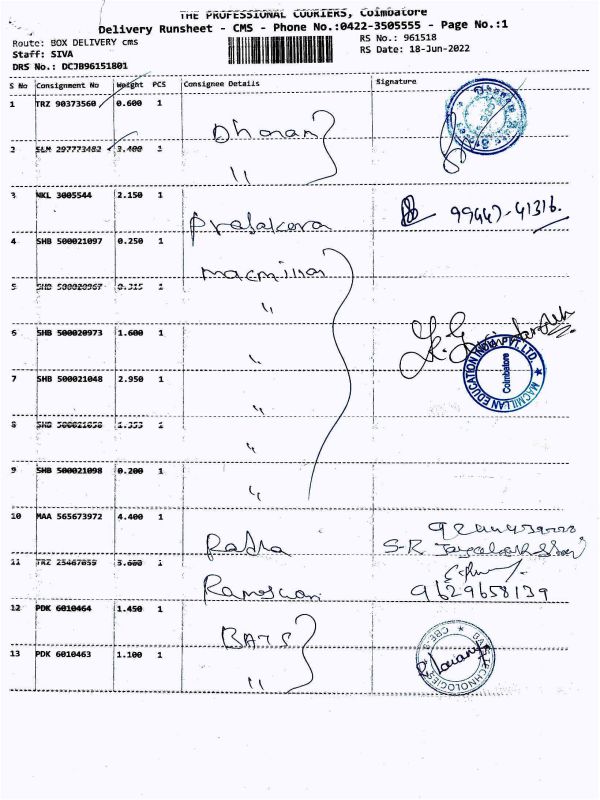 THE PROFESSIONAL COURIERS, Coimbatore
Delivery Runsheet - CMS - Phone No.:0422-3505555 - Page No.:1
Route: BOX DELIVERY cms
RS No.: 961518
Staff: SIVA
RS Date: 18-Jun-2022
DRS No.: DCJB96151801
S No Consignment No Weight PCS Consignee Details Signature
1 TRZ 90373560 0.600 1
Dhanam
2 SLM 297773482 3.400 1
"
3 NKL 3005544 2.150 1
99447-41316.
4 SHB 500021097 0.250 1
macmillan
5 SHB 500020967 0.315 1
"
6 SHB 500020973 1.600 1
"
MACMILLAN EDUCATION INDIA PVT. LTD. ★ Coimbatore
7 SHB 500021048 2.950 1
"
8 SHB 1.353 1
"
9 SHB 500021098 0.200 1
"
10 MAA 565673972 4.400 1
Radha
S-R
11 TRZ 3.600 1
9629658139
12 PDK 6010464 1.450 1
BATS
13 PDK 6010463 1.100 1
"
BATS TECHNOLOGIES CBE-9. ★